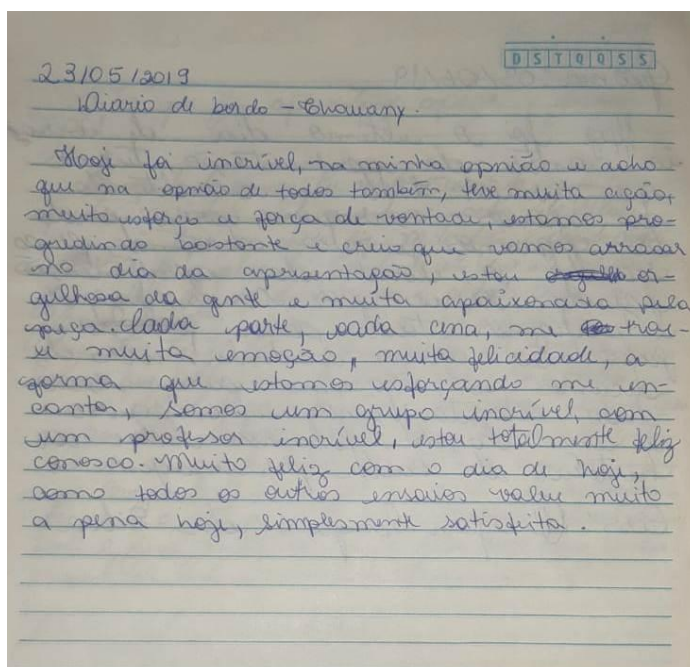 D S T Q Q S S
23/05/2019
Diario de bordo - Thowany.
Hoje foi incrível, na minha opnião e acho
que na opnião de todos também, teve muita ação,
muito esforço e força de vontade, estamos pro-
gredindo bastante e creio que vamos arrasar
no dia da apresentação, estou or-
gulhosa da gente e muita apaixonada pela
peça. Cada parte, cada cena, me trou-
xe muita emoção, muita felicidade, a
forma que estamos esforçando me en-
canta, somos um grupo incrível, com
um professor incrível, estou totalmente feliz
conosco. Muito feliz com o dia de hoje,
como todos os outros ensaios valeu muito
a pena hoje, simplesmente satisfeita.